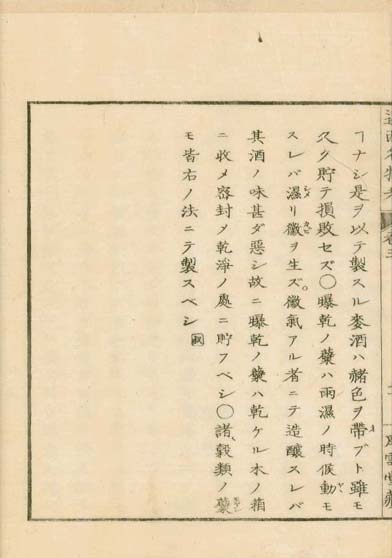 ヿナシ是ヲ以テ製スル麥酒ハ赭色ヲ帶ブト雖モ
久ク貯テ損敗セズ〇曝乾ノ蘖ハ雨濕ノ時候動モ
スレバ濕リ黴ヲ生ズ。黴氣アル者ニテ造釀スレバ
其酒ノ味甚ダ惡シ故ニ曝乾ノ蘖ハ乾ケル木ノ箱
ニ收メ密封〆乾淨ノ處ニ貯フベシ〇諸穀類ノ蘖
モ皆右ノ法ニテ製スベシ